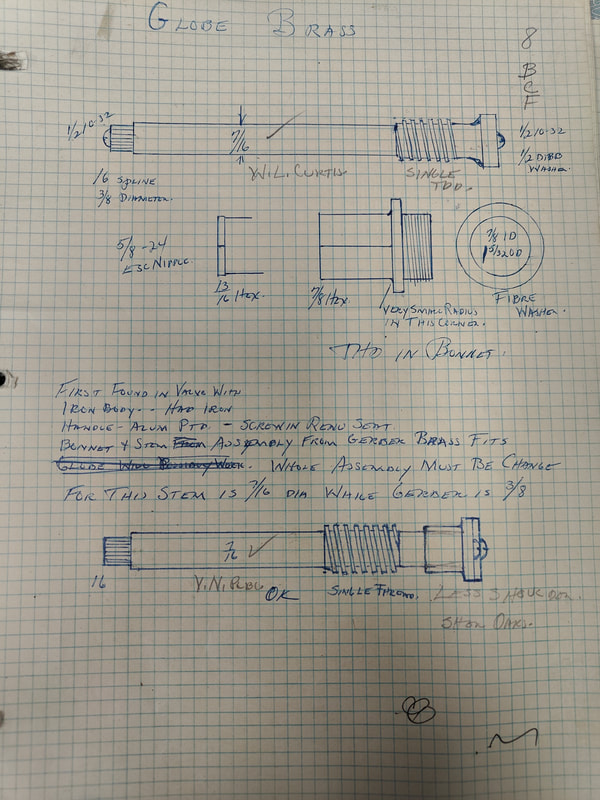 GLOBE BRASS
8
B
C
F
1/2 10-32
7/16
1/2 10-32
1/2 DIBB
WASHER.
16 SPLINE
3/8 DIAMETER.
W.L. CURTIS
SINGLE
THD.
5/8-24
ESC NIPPLE.
13/16 HEX.
7/8 HEX.
VERY SMALL RADIUS
IN THIS CORNER.
7/8 ID
1 5/32 OD
FIBRE
WASHER.
THD IN BONNET.
FIRST FOUND IN VALVE WITH
IRON BODY -- HAD IRON
HANDLE - ALUM PTD - SCREW IN RENU SEAT.
BONNET & STEM FROM ASSEMBLY FROM GERBER BRASS FITS
GLOBE WORK. WHOLE ASSEMBLY MUST BE CHANGE
FOR THIS STEM IS 7/16 DIA WHILE GERBER IS 3/8
7/16
16
OK
SINGLE THREAD.
LESS SHOULDER.